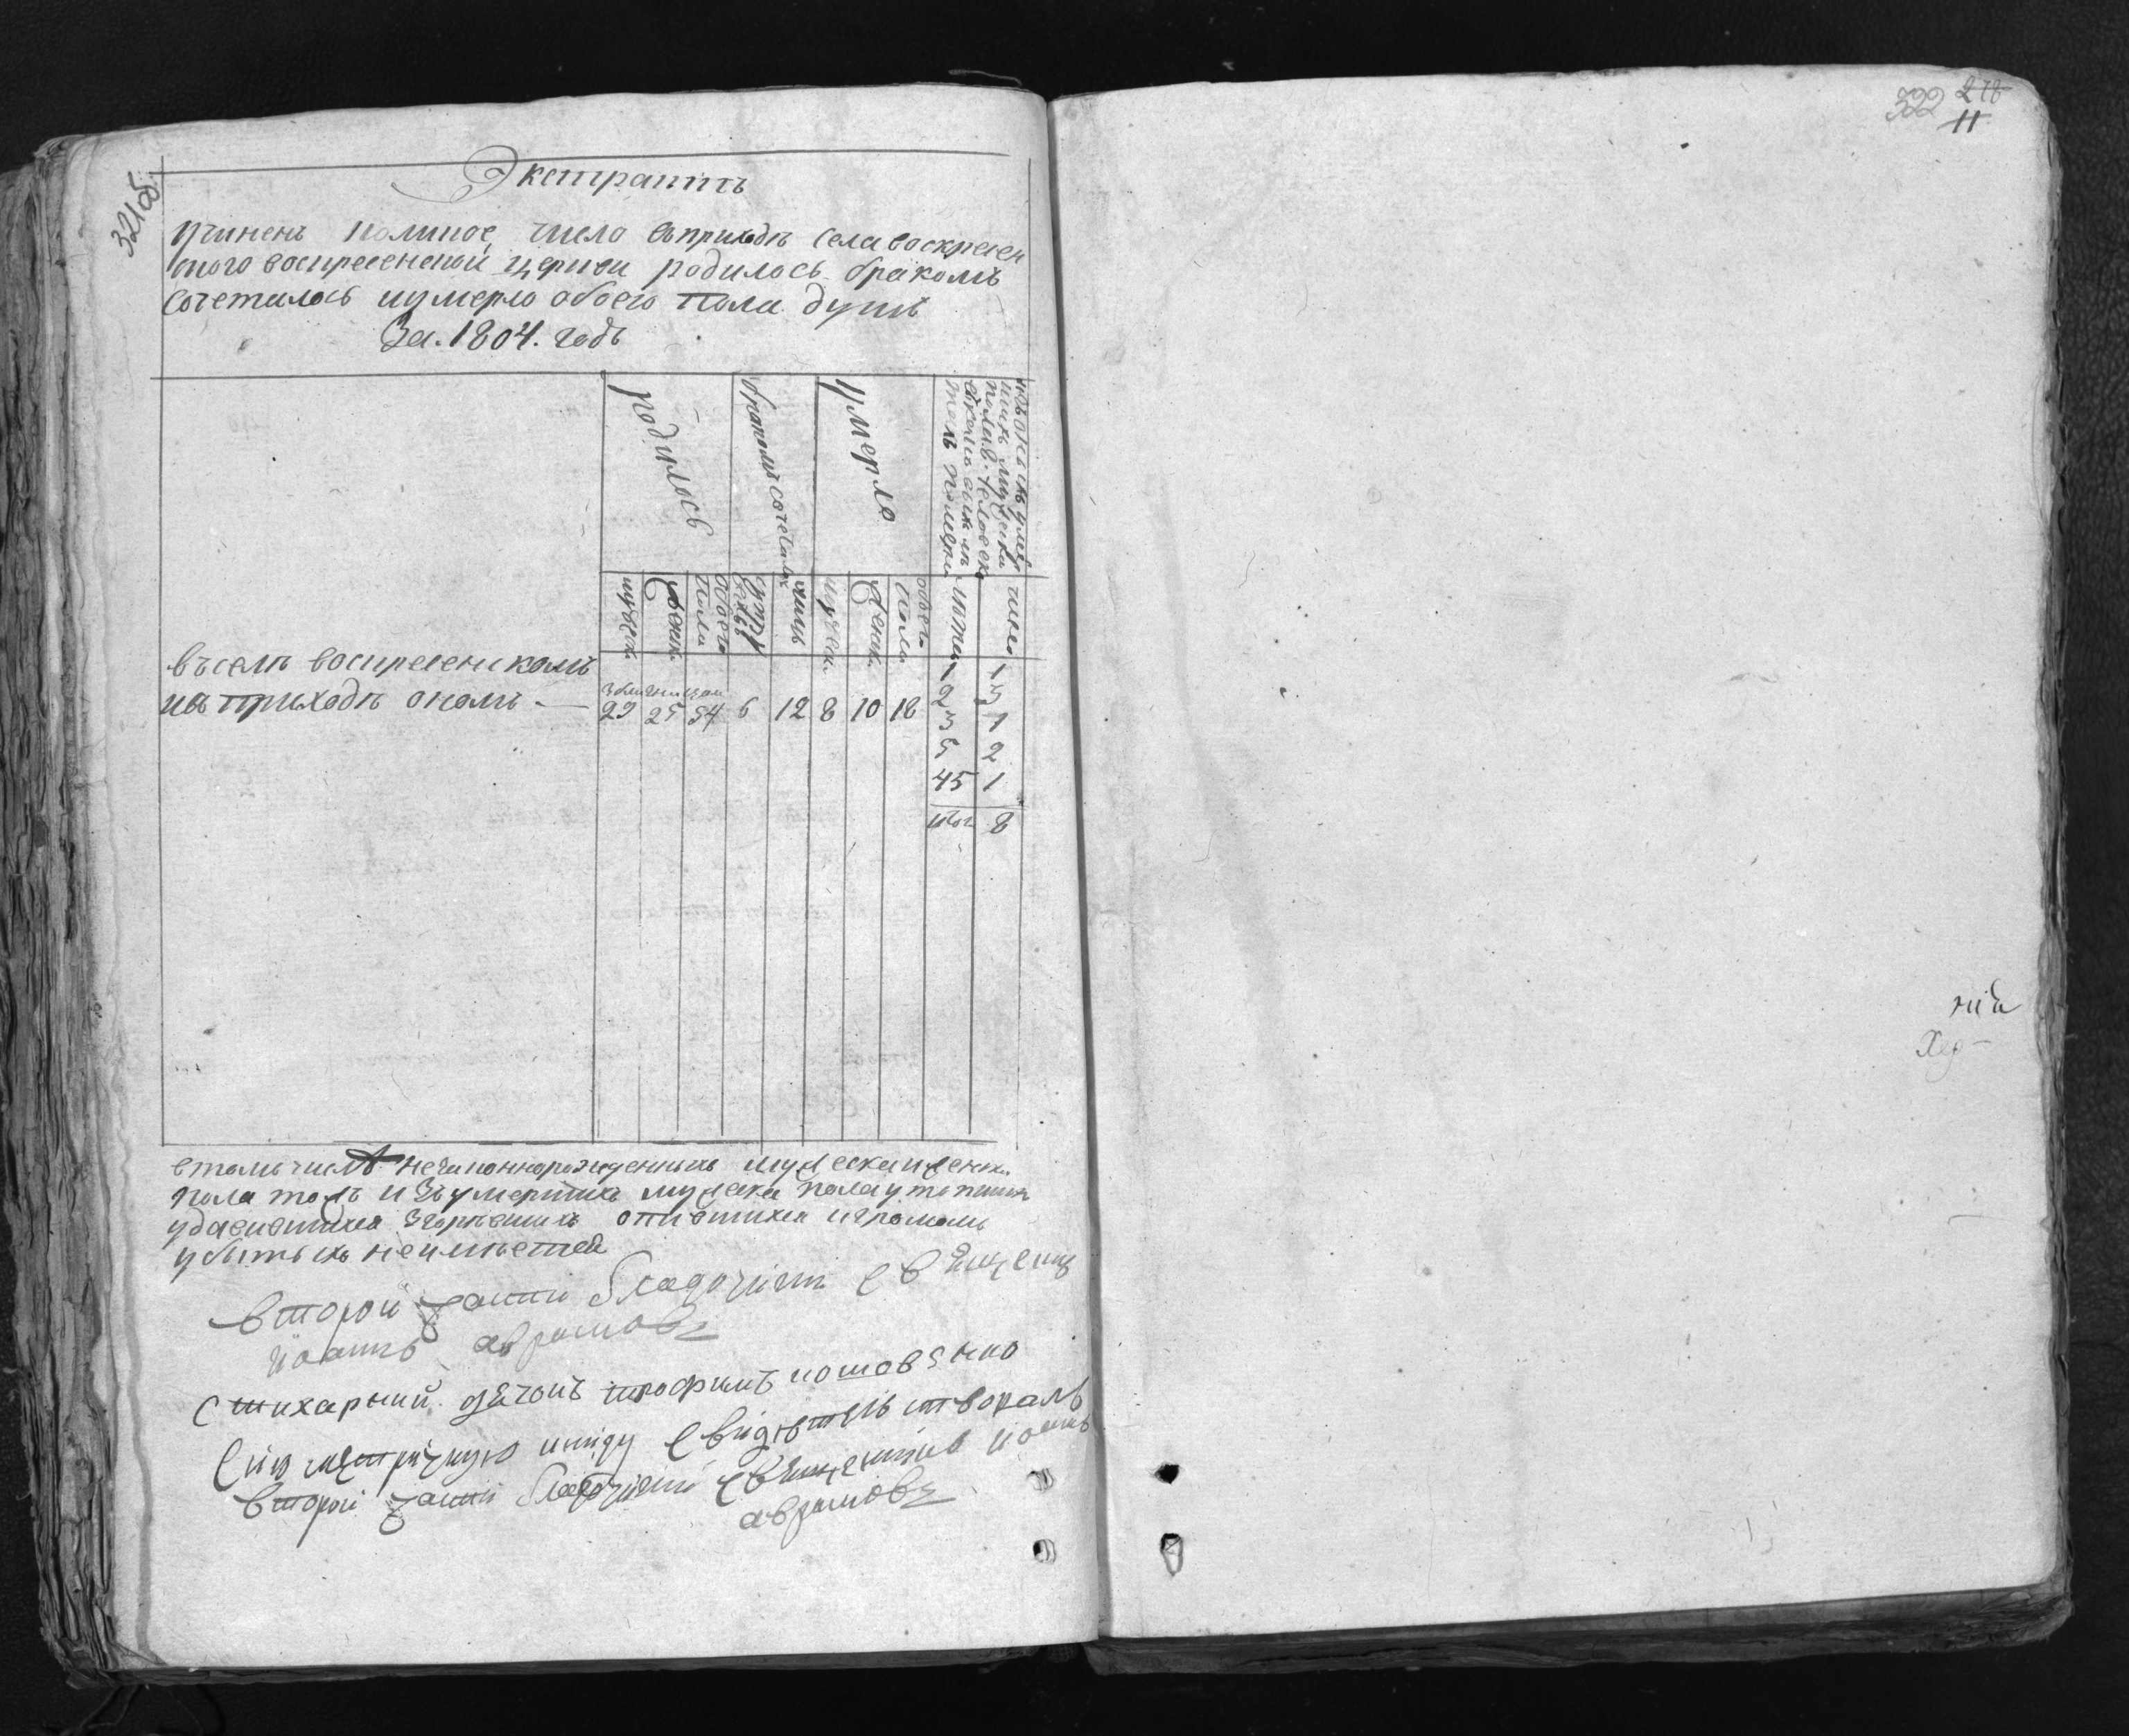 321об.
Экстрактъ
учиненъ колікое число въприходѣ села воскресен
ского воскресенской церкви родилось бракомъ
сочеталось иумерло обоего пола душъ
За. 1804. годъ
родилось
бракомъ сочеталось
умерло
изъ оныхъ умер
шихъ мужеска
пола 8. человекъ
мужеск.
женск.
обоего
пола
лицъ
мужеск.
женск.
обоего
пола
лѣты
число
въселѣ воскресенскомъ
ивъприходѣ ономъ —
29 25 54 6 12 8 10 18
1 3
2 1
3
5 2
45 1
итог 8
втомъ числѣ незаконнорожденныхъ мужеска иженска
пола тожъ и изъумершихъ мужеска пола утопшихъ
удавившихся згоревшихъ опившихся игромомъ
убытыхъ неимѣется
второй части благочинн священник
иоаннъ аврамовъ
Стихарный дячокъ трофимъ
Сию метрическую книгу свидѣтельствовалъ
второй части благочинный священникъ иоаннъ
аврамовъ
322
278
11
нія
Хер-